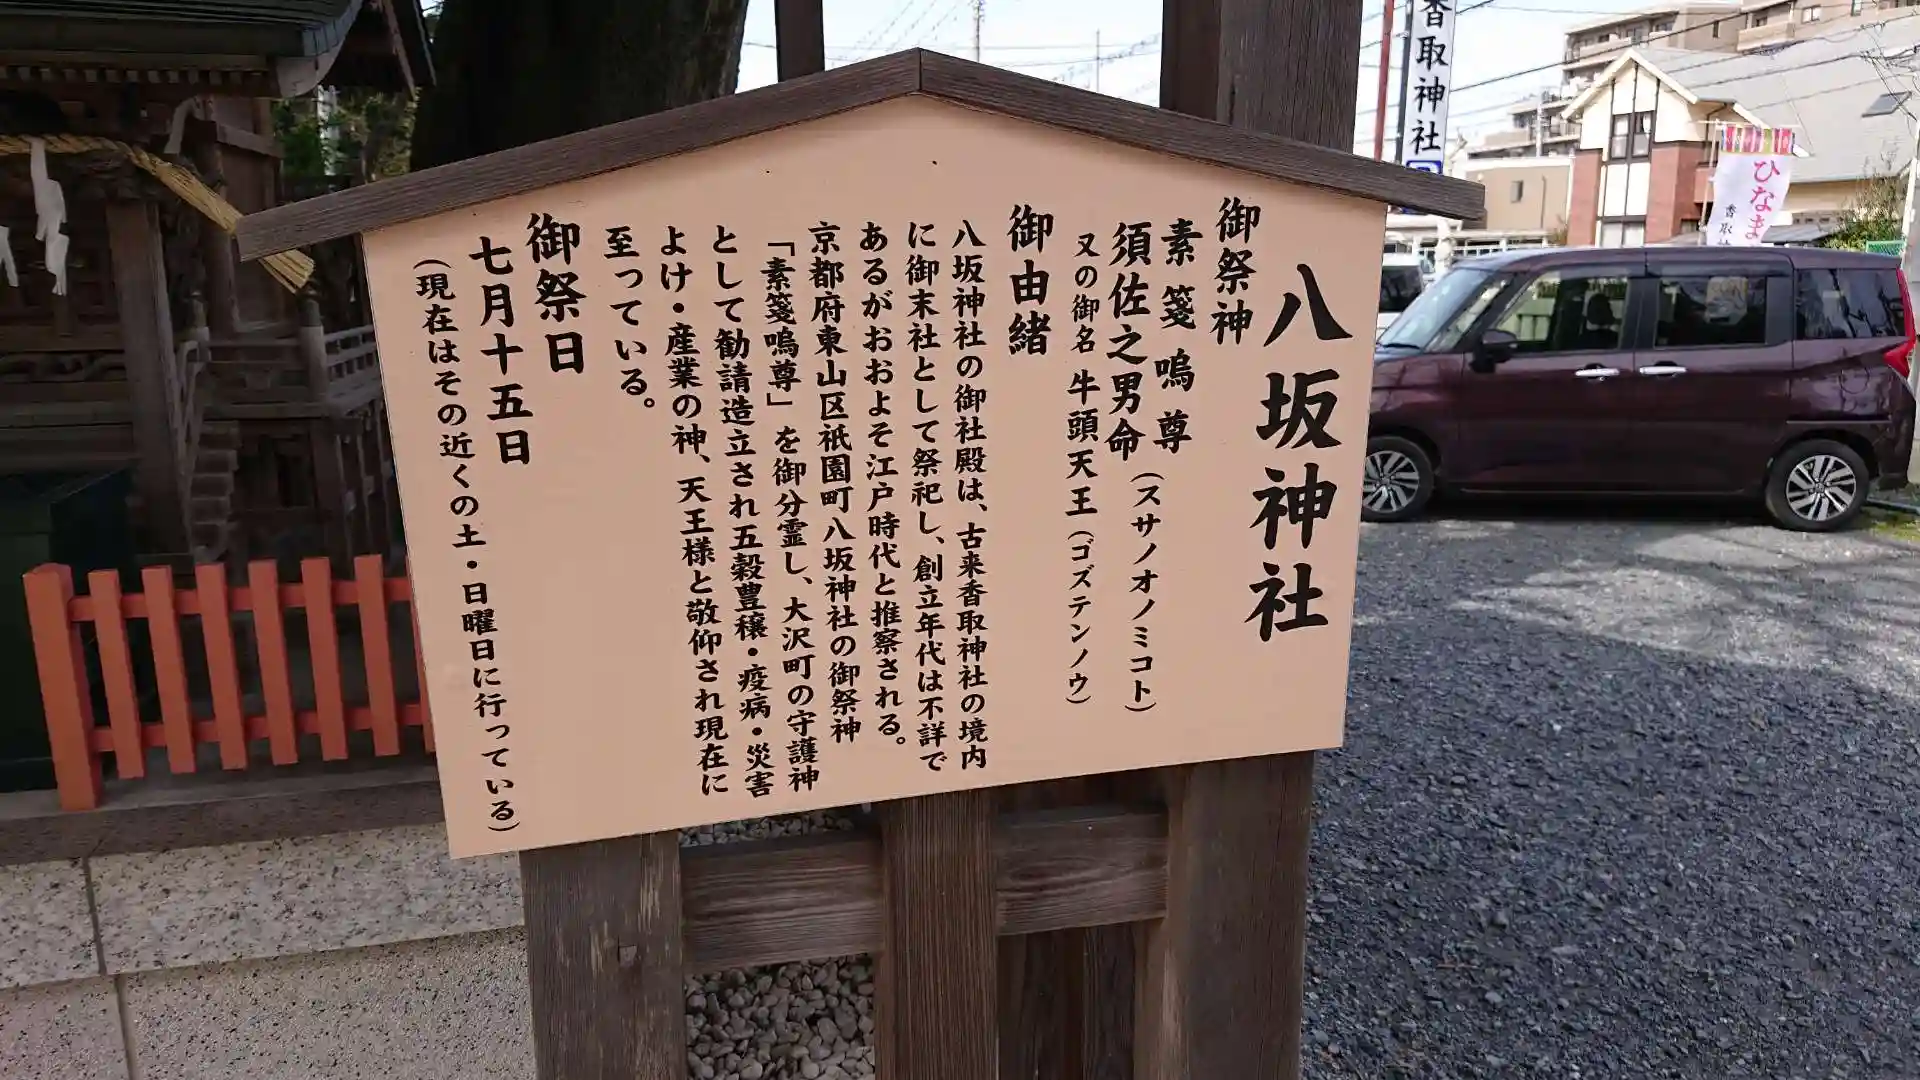 八坂神社
御祭神
素箋嗚尊
須佐之男命（スサノオノミコト）
又の御名 牛頭天王（ゴズテンノウ）
御由緒
八坂神社の御社殿は、古来香取神社の境内
に御末社として祭祀し、創立年代は不詳で
あるがおおよそ江戸時代と推察される。
京都府東山区祇園町八坂神社の御祭神
「素箋嗚尊」を御分霊し、大沢町の守護神
として勧請造立され五穀豊穣・疫病・災害
よけ・産業の神、天王様と敬仰され現在に
至っている。
御祭日
七月十五日
（現在はその近くの土・日曜日に行っている）
香取神社
ひなま
香取神